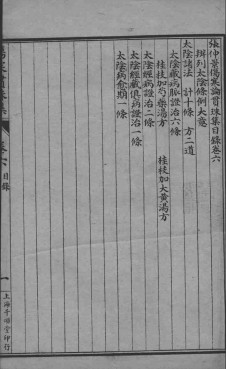 張仲景傷寒論貫珠集目錄卷六
辨列太陰條例大意
太陰諸法 計十條 方二道
太陰藏病脈證治六條
桂枝加芍藥湯方 桂枝加大黃湯方
太陰經病證治二條
太陰經藏俱病證治一條
太陰病愈期一條
目錄
一
上海千頃堂印行